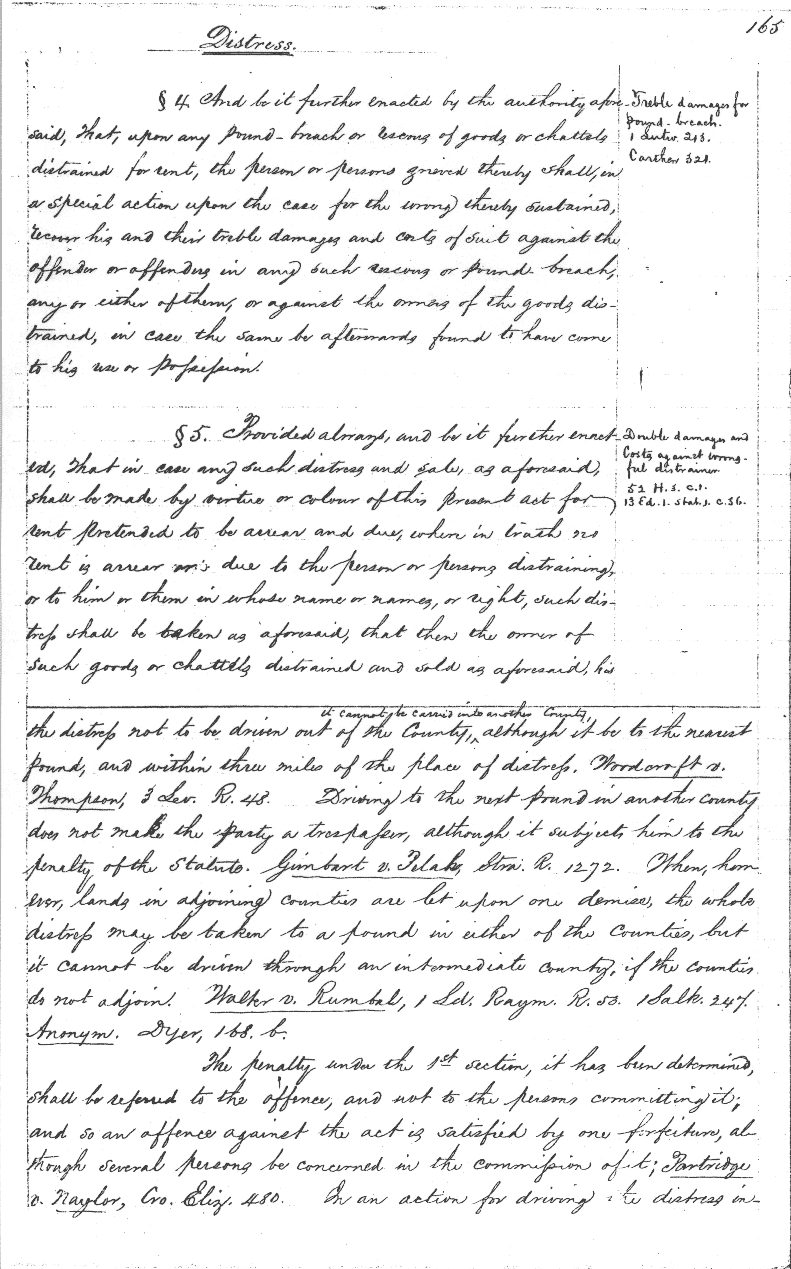 165
Distress.
§ 4. And be it further enacted by the authority afore-
said, That, upon any pound-breach or rescous of goods or chattels
distrained for rent, the person or persons grieved thereby shall, in
a special action upon the case for the wrong thereby sustained,
recover his and their treble damages and costs of suit against the
offender or offenders in any such rescous or pound breach,
any or either of them, or against the owners of the goods dis-
trained, in case the same be afterwards found to have come
to his use or possession.
Treble damages for
pound-breach.
1 Lutw. 213.
Carther 321.
§ 5. Provided always, and be it further enact-
ed, That in case any such distress and sale, as aforesaid,
shall be made by virtue or colour of this present act for
rent pretended to be arrear and due, where in truth no
rent is arrear or due to the person or persons distraining,
or to him or them in whose name or names, or right, such dis-
tress shall be taken as aforesaid, that then the owner of
such goods or chattels distrained and sold as aforesaid, his
Double damages and
Costs against wrong-
ful distrainer
52 H. 3. c. 1.
13 Ed. 1. Stat. 1. c. 36.
it cannot be carried into another County,
the distress not to be driven out of the County, ^ although it be to the nearest
pound, and within three miles of the place of distress. Woodcroft v.
Thompson, 3 Lev. R. 48. Driving to the next pound in another county
does not make the party a trespasser, although it subjects him to the
penalty of the Statute. Gimbart v. Pelah, Stra. R. 1272. When, how-
ever, lands in adjoining counties are let upon one demise, the whole
distress may be taken to a pound in either of the Counties, but
it cannot be driven through an intermediate county, if the counties
do not adjoin. Walter v. Rumbal, 1 Ld. Raym. R. 53. 1 Salk. 247.
Anonym. Dyer, 168. b.
The penalty under the 1st section, it has been determined,
shall be referred to the offence, and not to the persons committing it;
and so an offence against the act is satisfied by one forfeiture, al-
though several persons be concerned in the commission of it; Partridge
v. Naylor, Cro. Eliz. 480. In an action for driving the distress in-